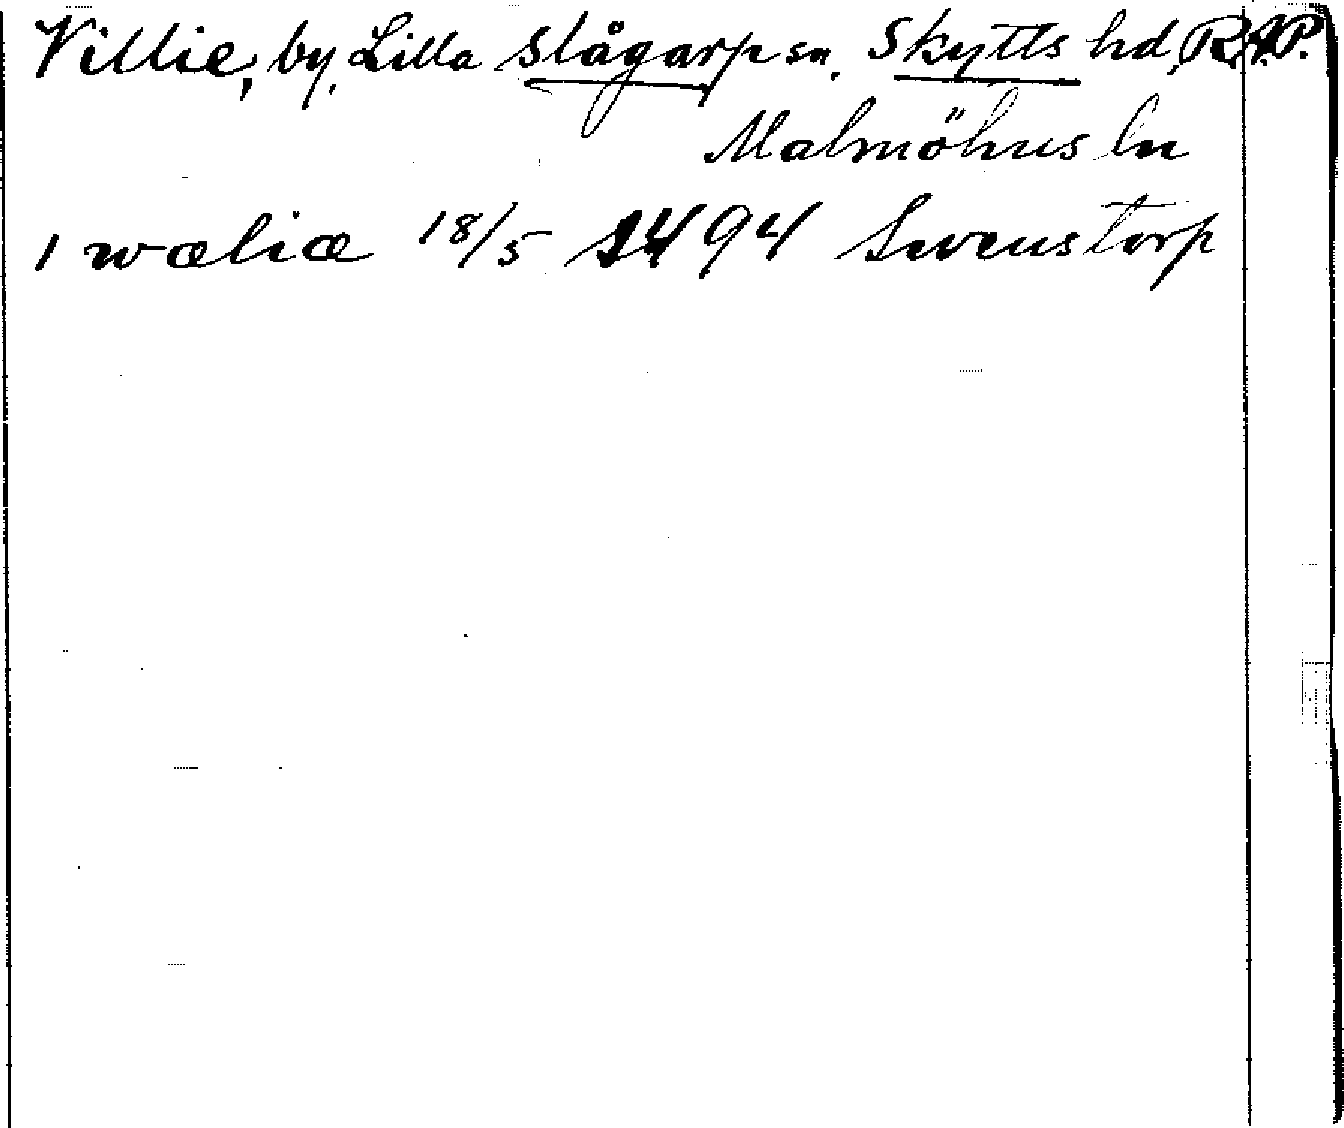 Villie, by, Lilla Slågarp sn, Skytts hd, R.A.P.
Malmöhus ln
1 wæliæ 18/5 1494 Swenstorp